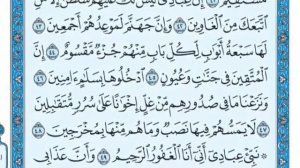 مُسْتَقِيمٌ ٤١ إِنَّ عِبَادِى لَيْسَ لَكَ عَلَيْهِمْ سُلْطَٰنٌ إِلَّا مَنِ
ٱتَّبَعَكَ مِنَ ٱلْغَاوِينَ ٤٢ وَإِنَّ جَهَنَّمَ لَمَوْعِدُهُمْ أَجْمَعِينَ ٤٣
لَهَا سَبْعَةُ أَبْوَٰبٍ لِّكُلِّ بَابٍ مِّنْهُمْ جُزْءٌ مَّقْسُومٌ ٤٤ إِنَّ
ٱلْمُتَّقِينَ فِى جَنَّٰتٍ وَعُيُونٍ ٤٥ ٱدْخُلُوهَا بِسَلَٰمٍ ءَامِنِينَ ٤٦
وَنَزَعْنَا مَا فِى صُدُورِهِم مِّنْ غِلٍّ إِخْوَٰنًا عَلَىٰ سُرُرٍ مُّتَقَٰبِلِينَ
٤٧ لَا يَمَسُّهُمْ فِيهَا نَصَبٌ وَمَا هُم مِّنْهَا بِمُخْرَجِينَ ٤٨
نَبِّئْ عِبَادِىٓ أَنِّىٓ أَنَا ٱلْغَفُورُ ٱلرَّحِيمُ ٤٩ وَأَنَّ عَذَابِى